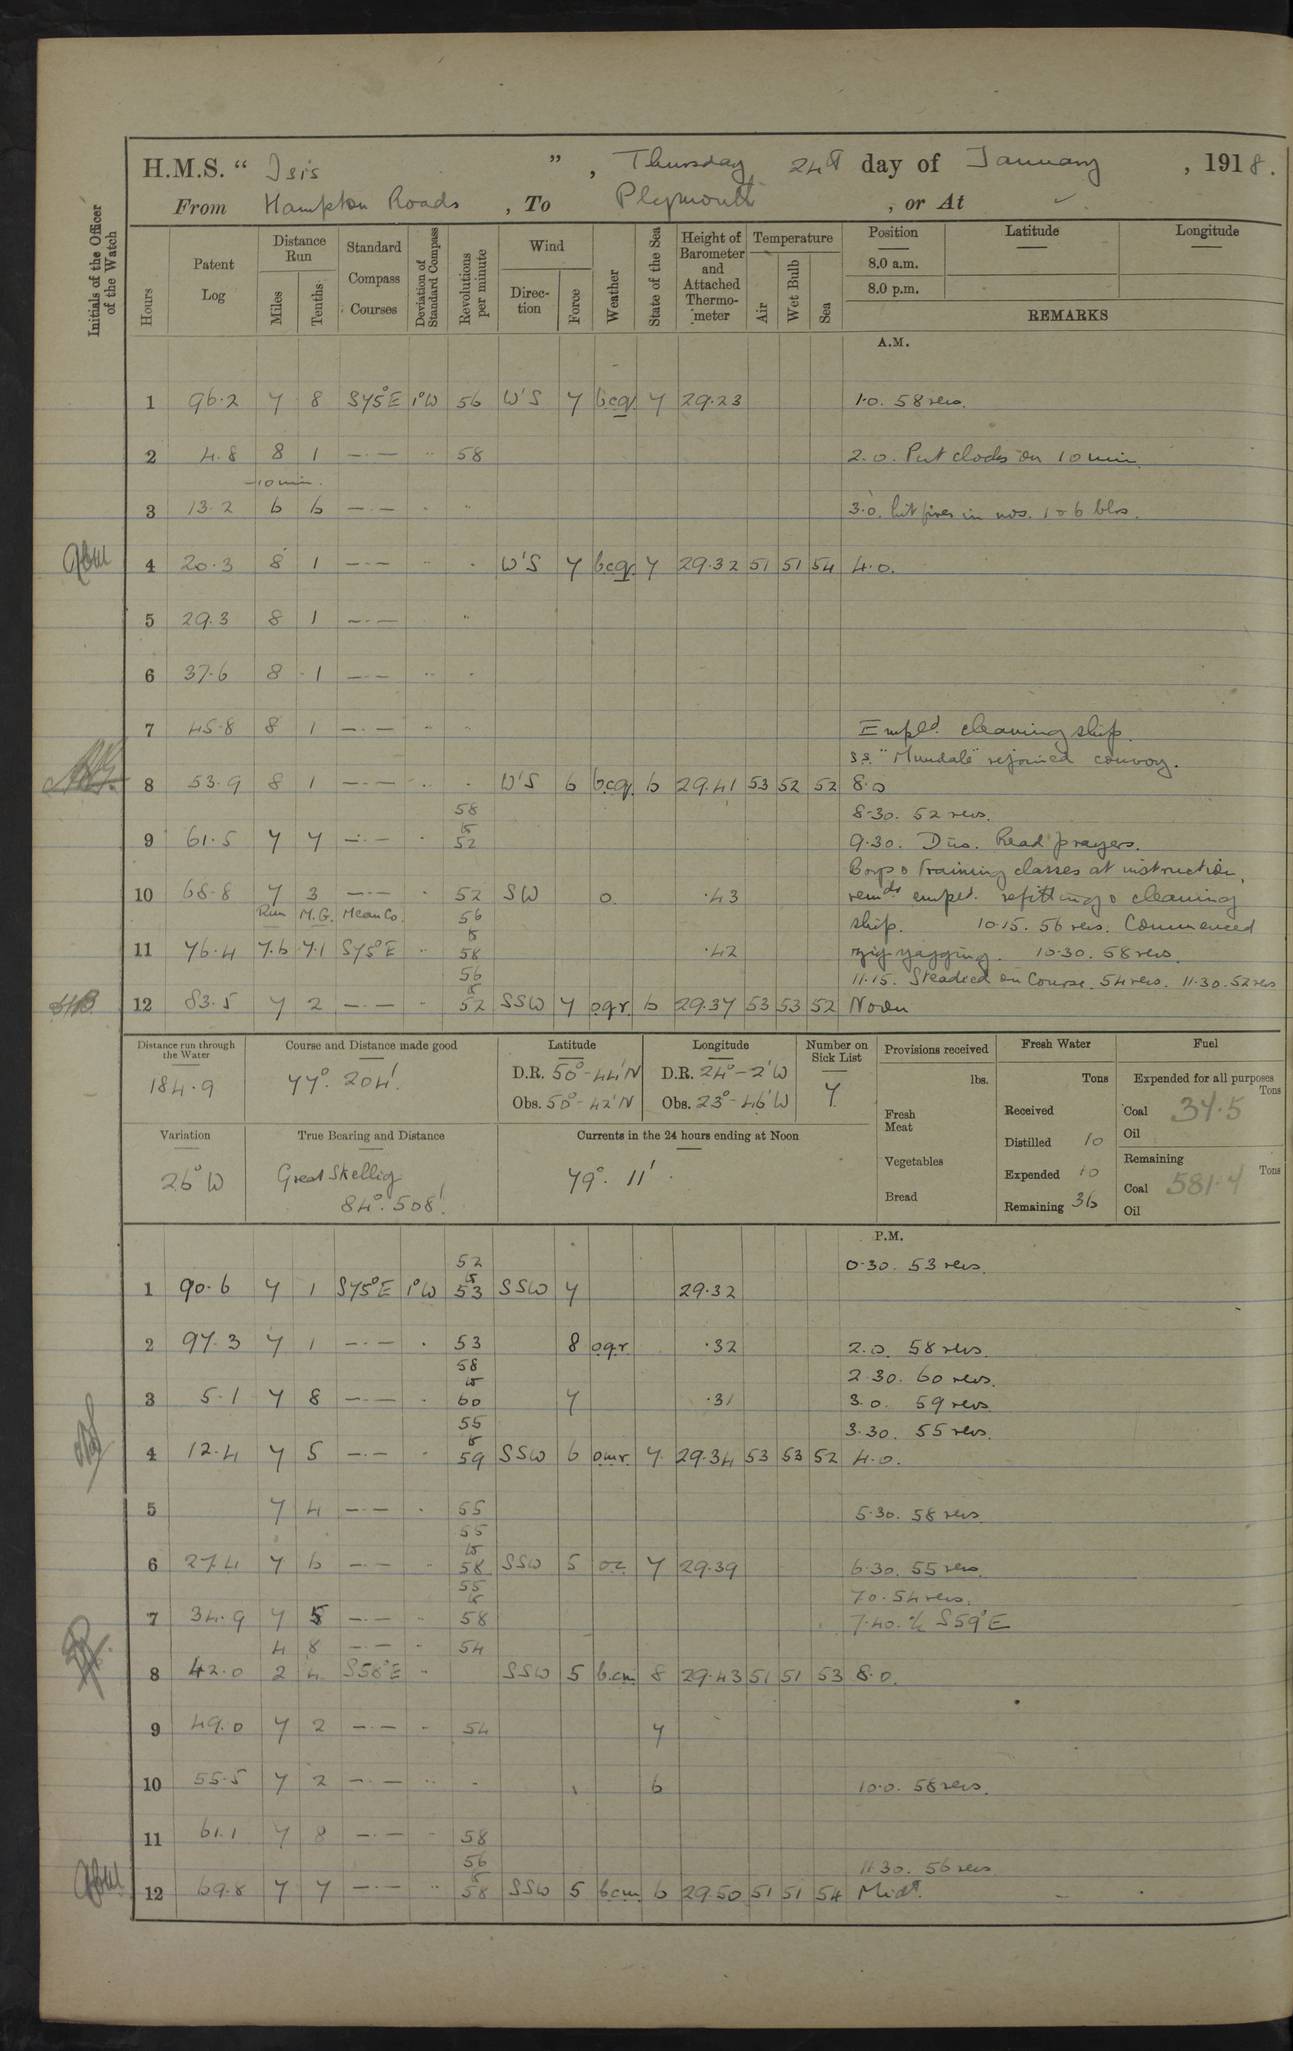 H.M.S. “ Isis ” , Thursday 24th day of January , 1918.
From Hampton Roads , To Plymouth , or At ✓
Initials of the Officer of the Watch
Hours
Patent Log
Distance Run
Miles
Tenths
Standard Compass Courses
Deviation of Standard Compass
Revolutions per minute
Wind
Direction
Force
Weather
State of the Sea
Height of Barometer and Attached Thermometer
Temperature
Air
Wet Bulb
Sea
Position Latitude Longitude
8.0 a.m.
8.0 p.m.
REMARKS
A.M.
1 96.2 7 8 S75°E 1°W 56 W'S 7 bcq. 7 29.23 1.0. 58 revs.
2 4.8 8 1 —·— ·· 58 2.0. Put clocks on 10 min.
-10 min.
3 13.2 6 6 —·— · ·· 3.0. Lit fires in nos. 1 & 6 blrs.
4 20.3 8 1 —·— ·· · W'S 7 bcq. 7 29.32 51 51 54 4.0.
5 29.3 8 1 —·— ··
6 37.6 8 1 —·— ·· ·
7 45.8 8 1 —·— ·· · Empld cleaning ship.
S.S. "Mundale" rejoined convoy.
8 53.9 8 1 —·— ·· · W'S 6 bcq. 6 29.41 53 52 52 8.0
58 8.30. 52 revs.
9 61.5 7 7 —·— · to 52 9.30. Divs. Read prayers.
Boys & Training classes at instruction,
10 68.8 7 3 —·— · 52 SW o. .43 remdr empld. refitting & cleaning
Run M.G. Mean Co. 56 ship. 10.15. 56 revs. Commenced
11 76.4 7.6 7.1 S75°E ·· to 58 .42 zig-zagging. 10.30. 58 revs.
56 11.15. Steadied on Course. 54 revs. 11.30. 52 revs
12 83.5 7 2 —·— · to 52 SSW 7 oqr. 6 29.37 53 53 52 Noon
Distance run through the Water
184.9
Course and Distance made good
77°. 204'.
Latitude
D.R. 50°-44'N
Obs. 50°-42'N
Longitude
D.R. 24°-2'W
Obs. 23°-46'W
Number on Sick List
7
Provisions received
lbs.
Fresh Meat
Vegetables
Bread
Fresh Water
Tons
Received
Distilled 10
Expended 10
Remaining 36
Fuel
Expended for all purposes
Tons
Coal 34.5
Oil
Remaining
Tons
Coal 581.4
Oil
Variation
26°W
True Bearing and Distance
Great Skellig
84°. 508'.
Currents in the 24 hours ending at Noon
79°. 11'.
P.M.
52 0.30. 53 revs.
1 90.6 7 1 S75°E 1°W to 53 SSW 7 29.32
2 97.3 7 1 —·— · 53 8 oqr. .32 2.0. 58 revs.
58 2.30. 60 revs.
3 5.1 7 8 —·— · to 60 7 .31 3.0. 59 revs
55 3.30. 55 revs.
4 12.4 7 5 —·— · to 59 SSW 6 omr. 7 29.34 53 53 52 4.0.
5 7 4 —·— · 55 5.30. 58 revs.
55
6 27.4 7 6 —·— ·· to 58 SSW 5 oc. 7 29.39 6.30. 55 revs.
55 7.0. 54 revs.
7 34.9 7 5 —·— ·· to 58 7.40. a/c S59°E
4 8 —·— · 54
8 42.0 2 4 S58°E ·· SSW 5 b.cm. 8 29.43 51 51 53 8.0.
9 49.0 7 2 —·— · 54 7
10 55.5 7 2 —·— ·· · 6 10.0. 58 revs.
11 61.1 7 8 —·— · 58
56 11.30. 56 revs
12 69.8 7 7 —·— ·· to 58 SSW 5 bcm. 6 29.50 51 51 54 Midt.